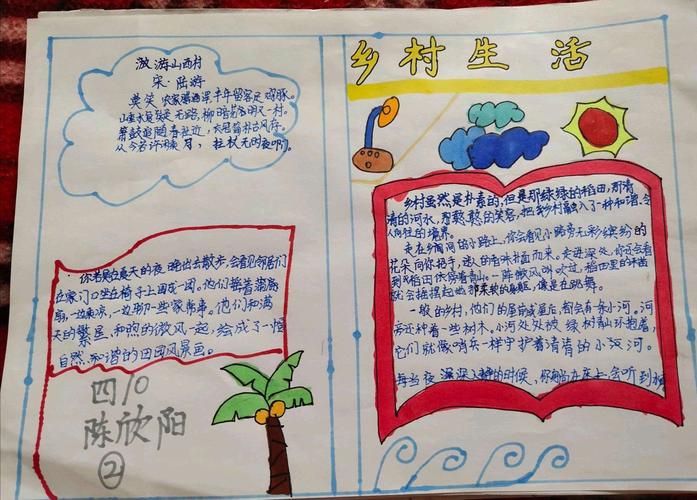 游山西村
宋·陆游
莫笑农家腊酒浑丰年留客足鸡豚。
山重水复疑无路,柳暗花明又一村。
箫鼓追随春社近,衣冠简朴古风存。
从今若许闲乘月,拄杖无时夜叩门。
你若是在夏天的夜晚出去散步,会看见邻居们
在家门口坐在椅子上围成一团。他们
扇,一边乘凉,一边聊一些家常事。他们和满
天的繁星,和煦的微风一起,绘成了一幅
自然,和谐的田园风景画。
四10
陈欣阳
②
乡村生活
乡村虽然是朴素的,但是那绿绿的稻田,那清
清的河水,那憨憨的笑容,把乡村融入了一种和谐,令
人向往的境界。
走在乡间的小路上,你会看见小路旁无彩缤纷的
花朵向你招手,迷人的香味扑面而来。走进深处,你还会看
到稻田依偎着青山。一阵微风吹过,稻田里的
就会摇摆起他那柔软的身躯,像是在跳舞。
一般的乡村,他们的屋前或屋后,都会有一条小河。河
旁还种着一些树木。小河处处被绿树青山环抱着,
它们就像哨兵一样守护着清清的小河。
每当夜深人静的时候,你躺在床上,会听到